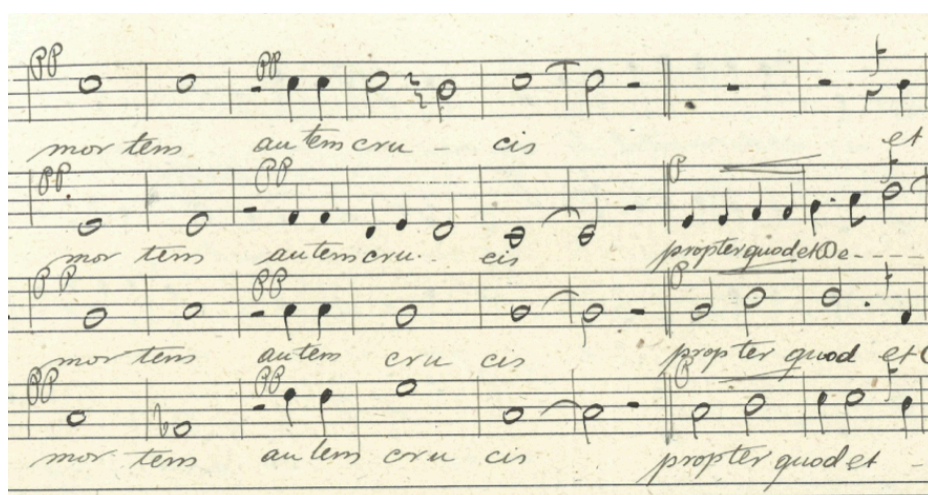 pp pp
mor tem autem cru - cis et
pp pp p
mor tem autem cru - cis propter quod et De - - - -
pp pp p
mor tem autem cru cis prop ter quod et
pp pp p
mor tem au tem cru cis propter quod et -